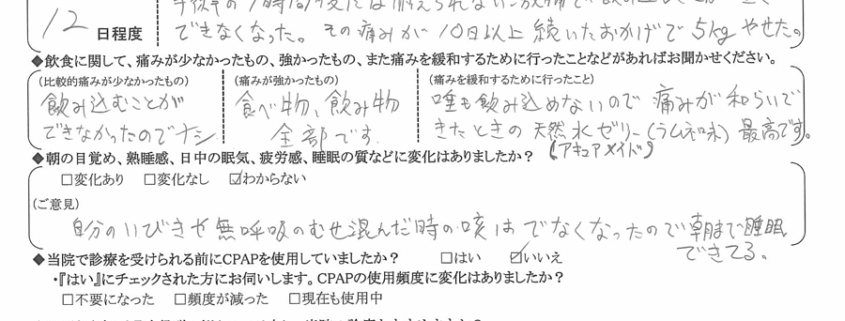 12 日程度
できなくなった。その痛みが10日以上続いたおかげで5kgやせた。
◆飲食に関して、痛みが少なかったもの、強かったもの、また痛みを緩和するために行ったことなどがあればお聞かせください。
(比較的痛みが少なかったもの) (痛みが強かったもの) (痛みを緩和するために行ったこと)
飲み込むことが 食べ物、飲み物 唾も飲み込めないので痛みが和らいで
できなかったのでナシ 全部です. きたときの天然水ゼリー(うムネ味)最高です。
(アキュアメイド)
◆朝の目覚め、熟睡感、日中の眠気、疲労感、睡眠の質などに変化はありましたか?
□変化あり □変化なし ☑わからない
(ご意見)
自分のいびきや無呼吸のむせ混んだ時の咳はでなくなったので朝まで睡眠
できてる。
◆当院で診療を受けられる前にCPAPを使用していましたか? □はい ☑いいえ
・『はい』にチェックされた方にお伺いします。CPAPの使用頻度に変化はありましたか?
□不要になった □頻度が減った □現在も使用中